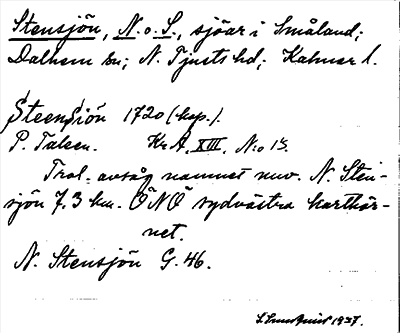 Stensjön, N. o. S., sjöar i Småland;
Dalhem sn; N. Tjusts hd; Kalmar l.
SteenSiön 1720 (kop.).
P. Talcen. Kr A. XIII. N:o 13.
Trol. avsåg namnet nuv. N. Sten-
sjön 7.3 km. ÖNÖ sydvästra karthör-
net.
N. Stensjön G. 46.
1937.